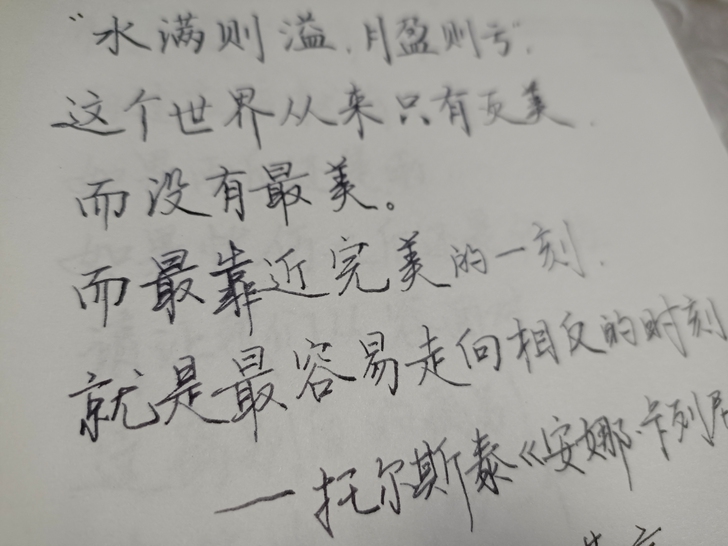 “水满则溢，月盈则亏”，
这个世界从来只有更美，
而没有最美。
而最靠近完美的一刻，
就是最容易走向相反的时刻
—托尔斯泰《安娜·卡列